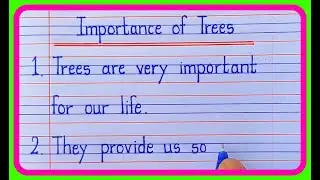 Importance of Trees
1. Trees are very important
for our life.
2. They provide us so